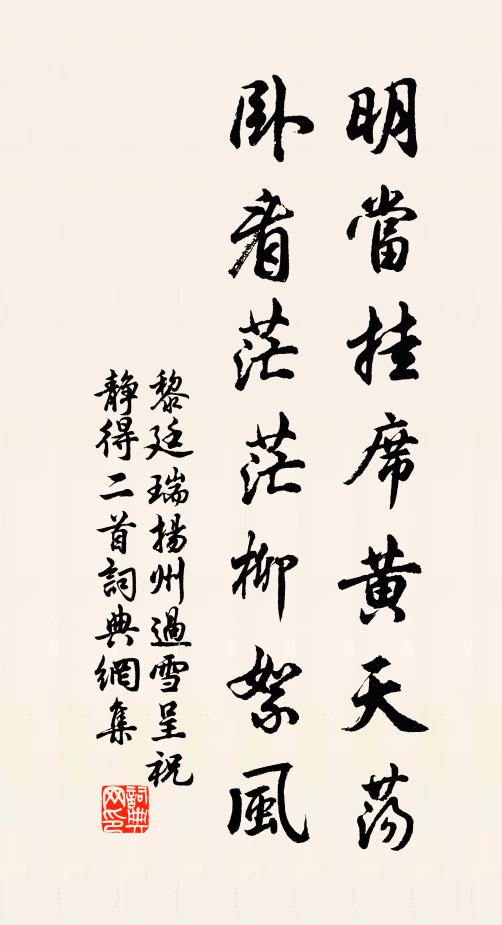 明當挂席黄天荡
卧看茫茫柳絮風
黎廷瑞揚州過雪呈祝
静得二首詞典網集
詞典网印